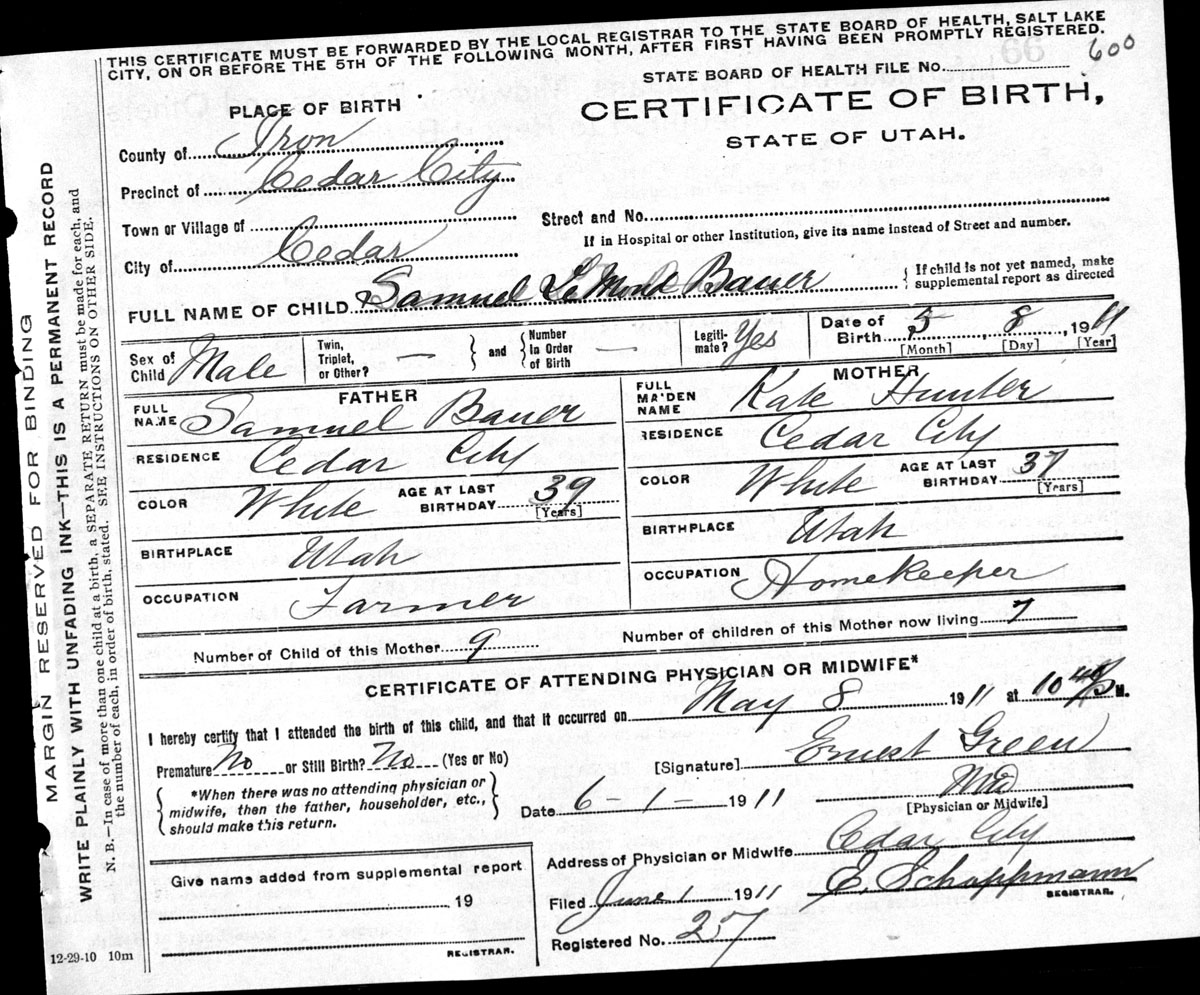 THIS CERTIFICATE MUST BE FORWARDED BY THE LOCAL REGISTRAR TO THE STATE BOARD OF HEALTH, SALT LAKE
CITY, ON OR BEFORE THE 5TH OF THE FOLLOWING MONTH, AFTER FIRST HAVING BEEN PROMPTLY REGISTERED.
600
STATE BOARD OF HEALTH FILE No.
CERTIFICATE OF BIRTH,
STATE OF UTAH.
PLACE OF BIRTH
County of Iron
Precinct of Cedar City
Town or Village of
Street and No.
City of Cedar
If in Hospital or other Institution, give its name instead of Street and number.
FULL NAME OF CHILD Samuel LeMond Bauer
{ If child is not yet named, make
supplemental report as directed
Sex of Child Male
Twin, Triplet, or Other? —
} and {
Number In Order of Birth —
Legitimate? Yes
Date of Birth 5, 8, 1911
[Month] [Day] [Year]
FATHER
FULL NAME Samuel Bauer
RESIDENCE Cedar City
COLOR White AGE AT LAST BIRTHDAY 39
[Years]
BIRTHPLACE Utah
OCCUPATION Farmer
MOTHER
FULL MAIDEN NAME Kate Hunter
RESIDENCE Cedar City
COLOR White AGE AT LAST BIRTHDAY 37
[Years]
BIRTHPLACE Utah
OCCUPATION Homekeeper
Number of Child of this Mother 9 Number of children of this Mother now living 7
CERTIFICATE OF ATTENDING PHYSICIAN OR MIDWIFE*
I hereby certify that I attended the birth of this child, and that it occurred on May 8 1911 at 10 M.
Premature No or Still Birth? No (Yes or No)
[Signature] Ernest Green
*When there was no attending physician or
midwife, then the father, householder, etc.,
should make this return.
Date 6 - 1 - 1911
MD
[Physician or Midwife]
Address of Physician or Midwife Cedar City
Give name added from supplemental report
19
REGISTRAR.
Filed June 1 1911 E. Schoppmann
REGISTRAR.
Registered No. 257
12-29-10 10m
MARGIN RESERVED FOR BINDING
WRITE PLAINLY WITH UNFADING INK—THIS IS A PERMANENT RECORD
N. B.—In case of more than one child at a birth, a SEPARATE RETURN must be made for each, and
the number of each, in order of birth, stated. SEE INSTRUCTIONS ON OTHER SIDE.